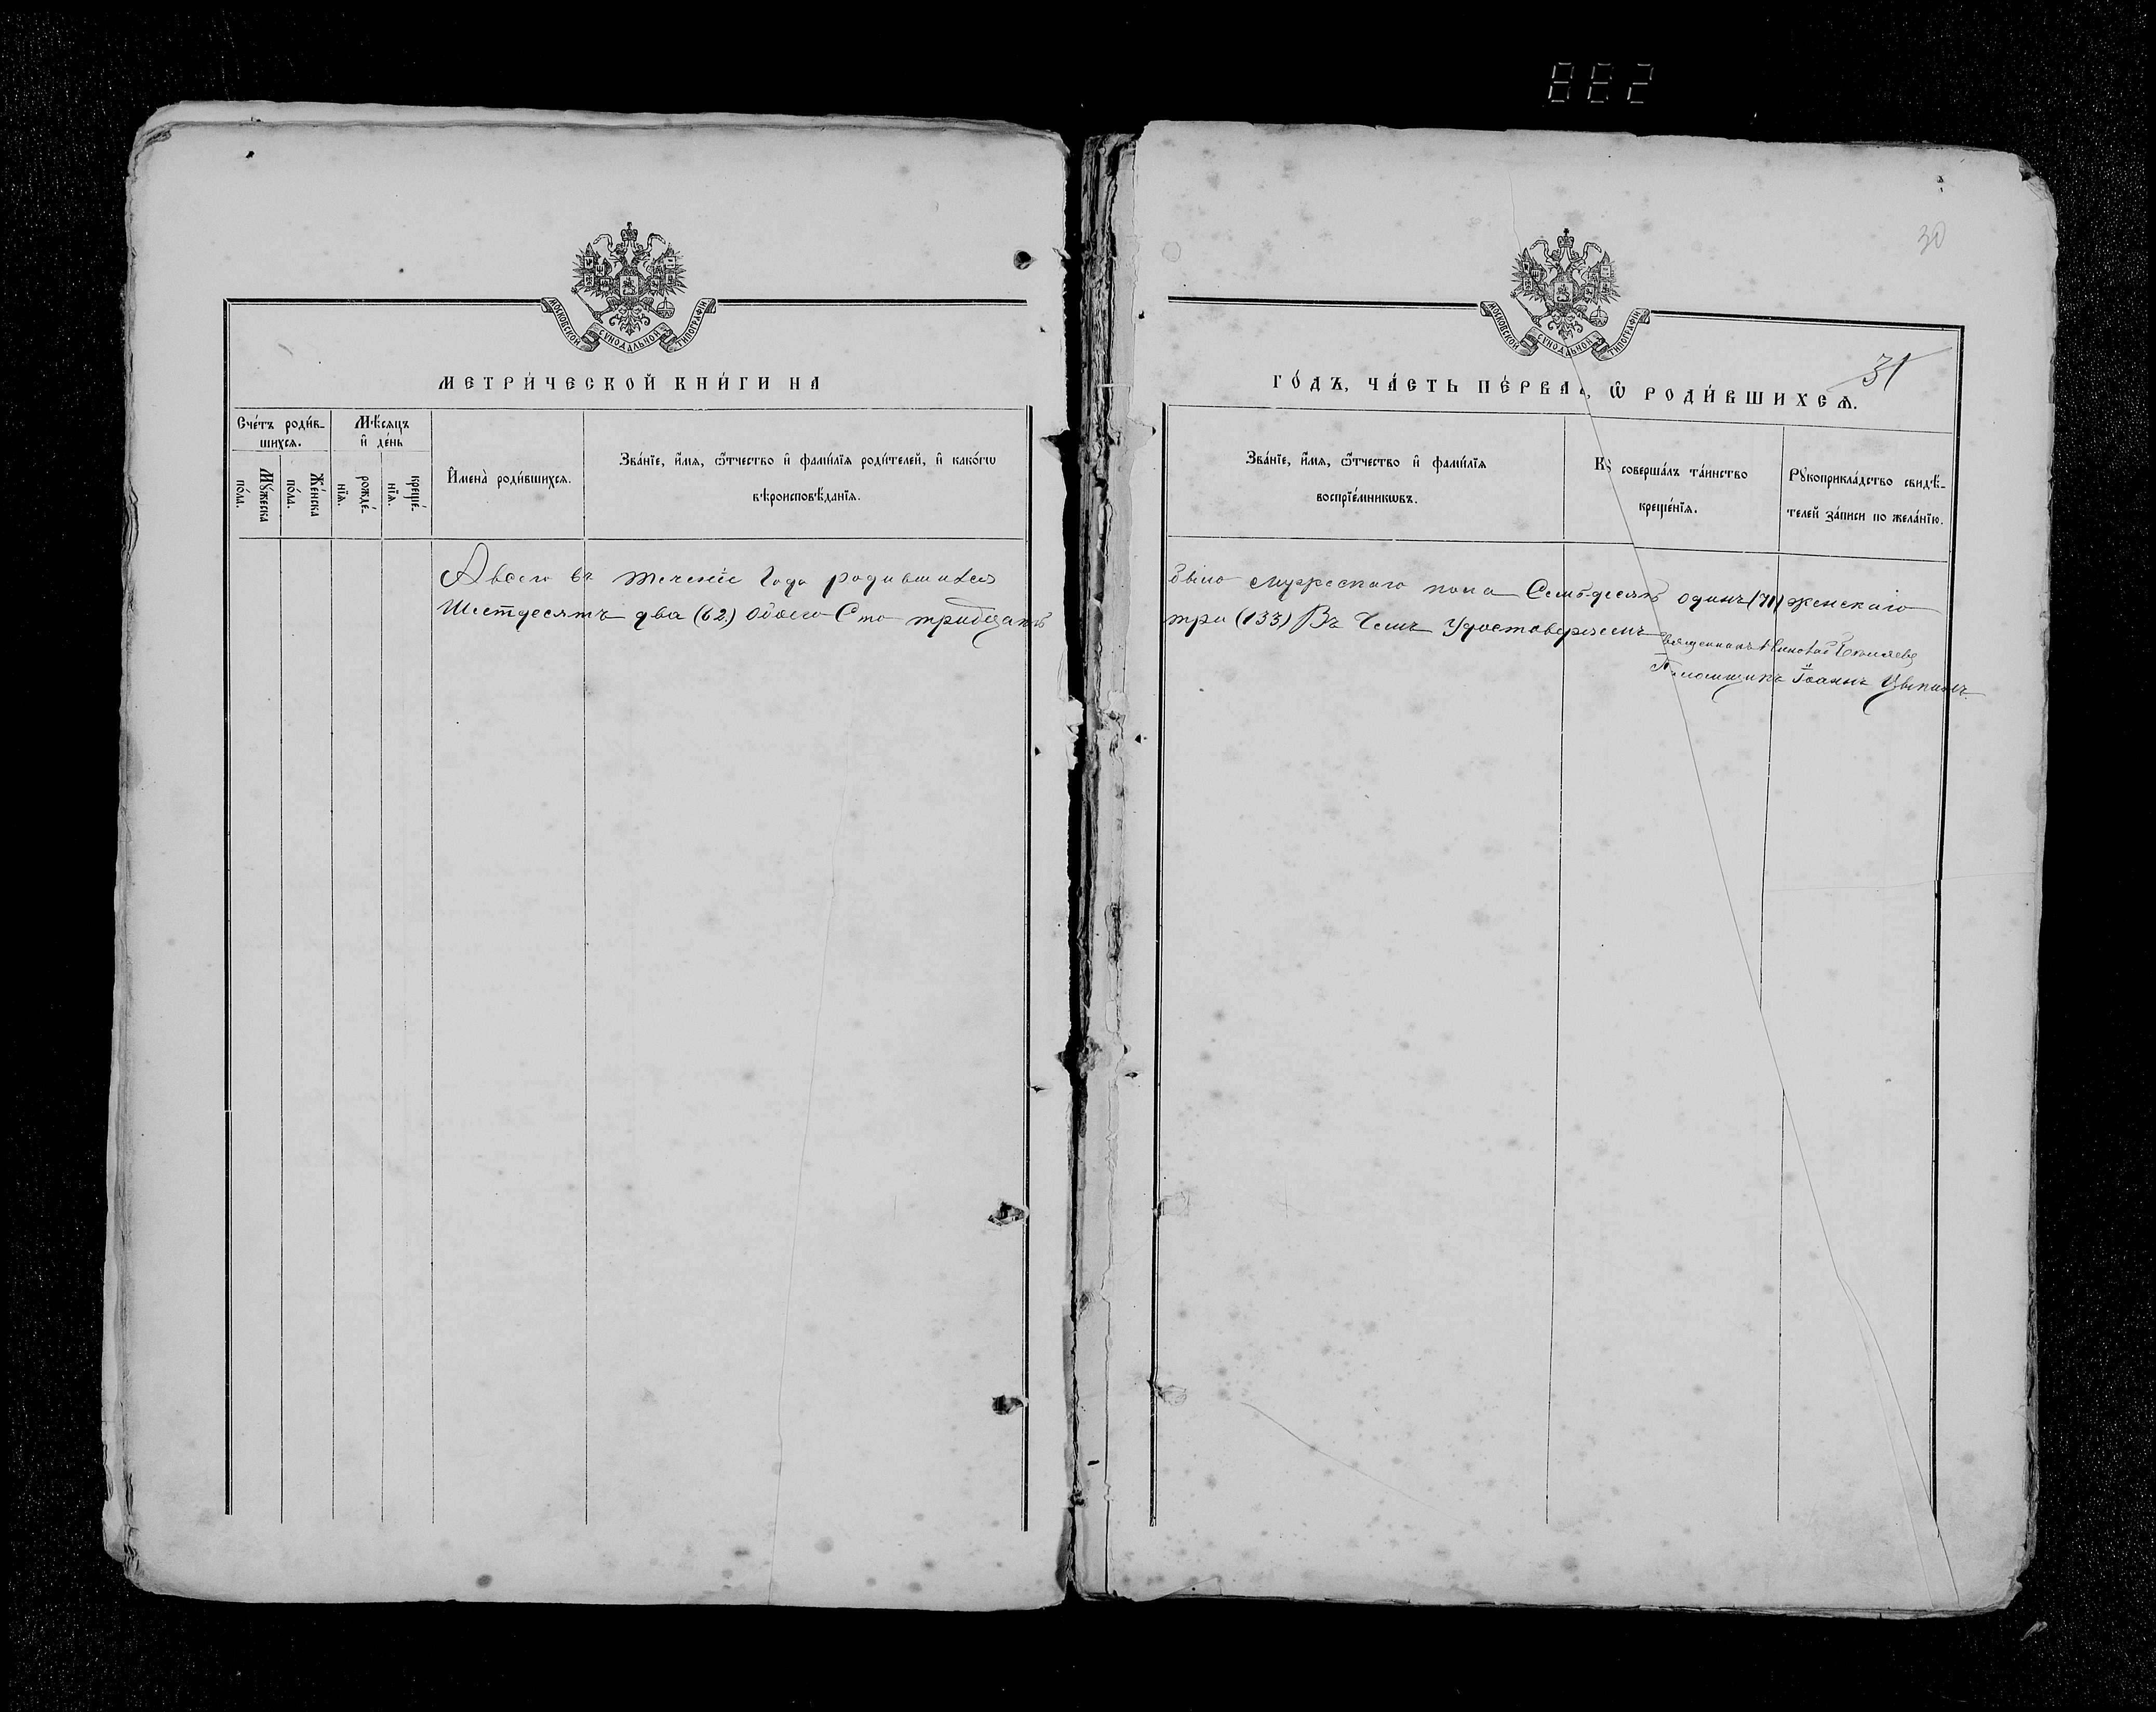 882
30
МОСКОВСКОЙ СѴНОДАЛЬНОЙ ТИПОГРАФІИ
МЕТРИ́ЧЕСКОЙ КНИ́ГИ НА
Сче́тъ роди́в-
шихся.
Мꙋ́жеска
по́ла.
Же́нска
по́ла.
Мѣ́сяцъ
и҆ де́нь
рожде́-
нїѧ.
креще́-
нїѧ.
И҆мена̀ роди́вшихсѧ.
Зва́нїе, и҆́мѧ, ѻ҆́тчество и҆ фами́лїѧ роди́телей, и҆ како́гѡ
вѣроисповѣ́данїѧ.
А всего въ теченіе Года родившихся
Шестдесятъ два (62.) Обоего Сто тридцать
МОСКОВСКОЙ СѴНОДАЛЬНОЙ ТИПОГРАФІИ
31
ГО́ДЪ, ЧА́СТЬ ПЕ́РВАѦ, Ѡ҆ РОДИ́ВШИХСѦ.
Зва́нїе, и҆́мѧ, ѻ҆́тчество и҆ фами́лїѧ
воспрїе́мникѡвъ.
совершáлъ та́инство
креще́нїѧ.
Рꙋкоприкла́дство свидѣ́-
телей за́писи по жела́нїю.
было мужескаго пола Семьдесятъ одинъ (71) женскаго
три (133) Въ Чемъ Удостоверяемъ
Священникъ
Псаломщикъ Іоаннъ